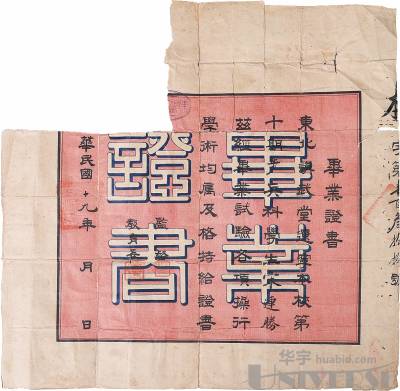 字第
畢業證書
東北講武堂遼寧校第
十期步兵科學生建勝
茲經畢業試驗各項操行
學術均屬及格特給證書
監督
教育長
華民國十九年 月 日
畢業
證書
华宇 huabid.com
UNIVERSE